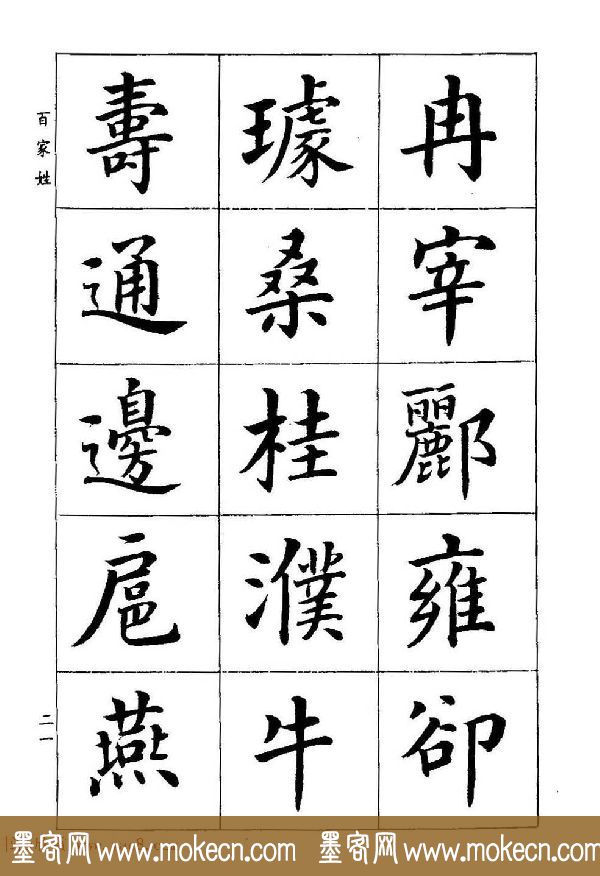 冉宰酈雍卻
璩桑桂濮牛
壽通邊扈燕
百家姓
二一
墨客网 www.mokecn.com 墨客网 www.mokecn.com